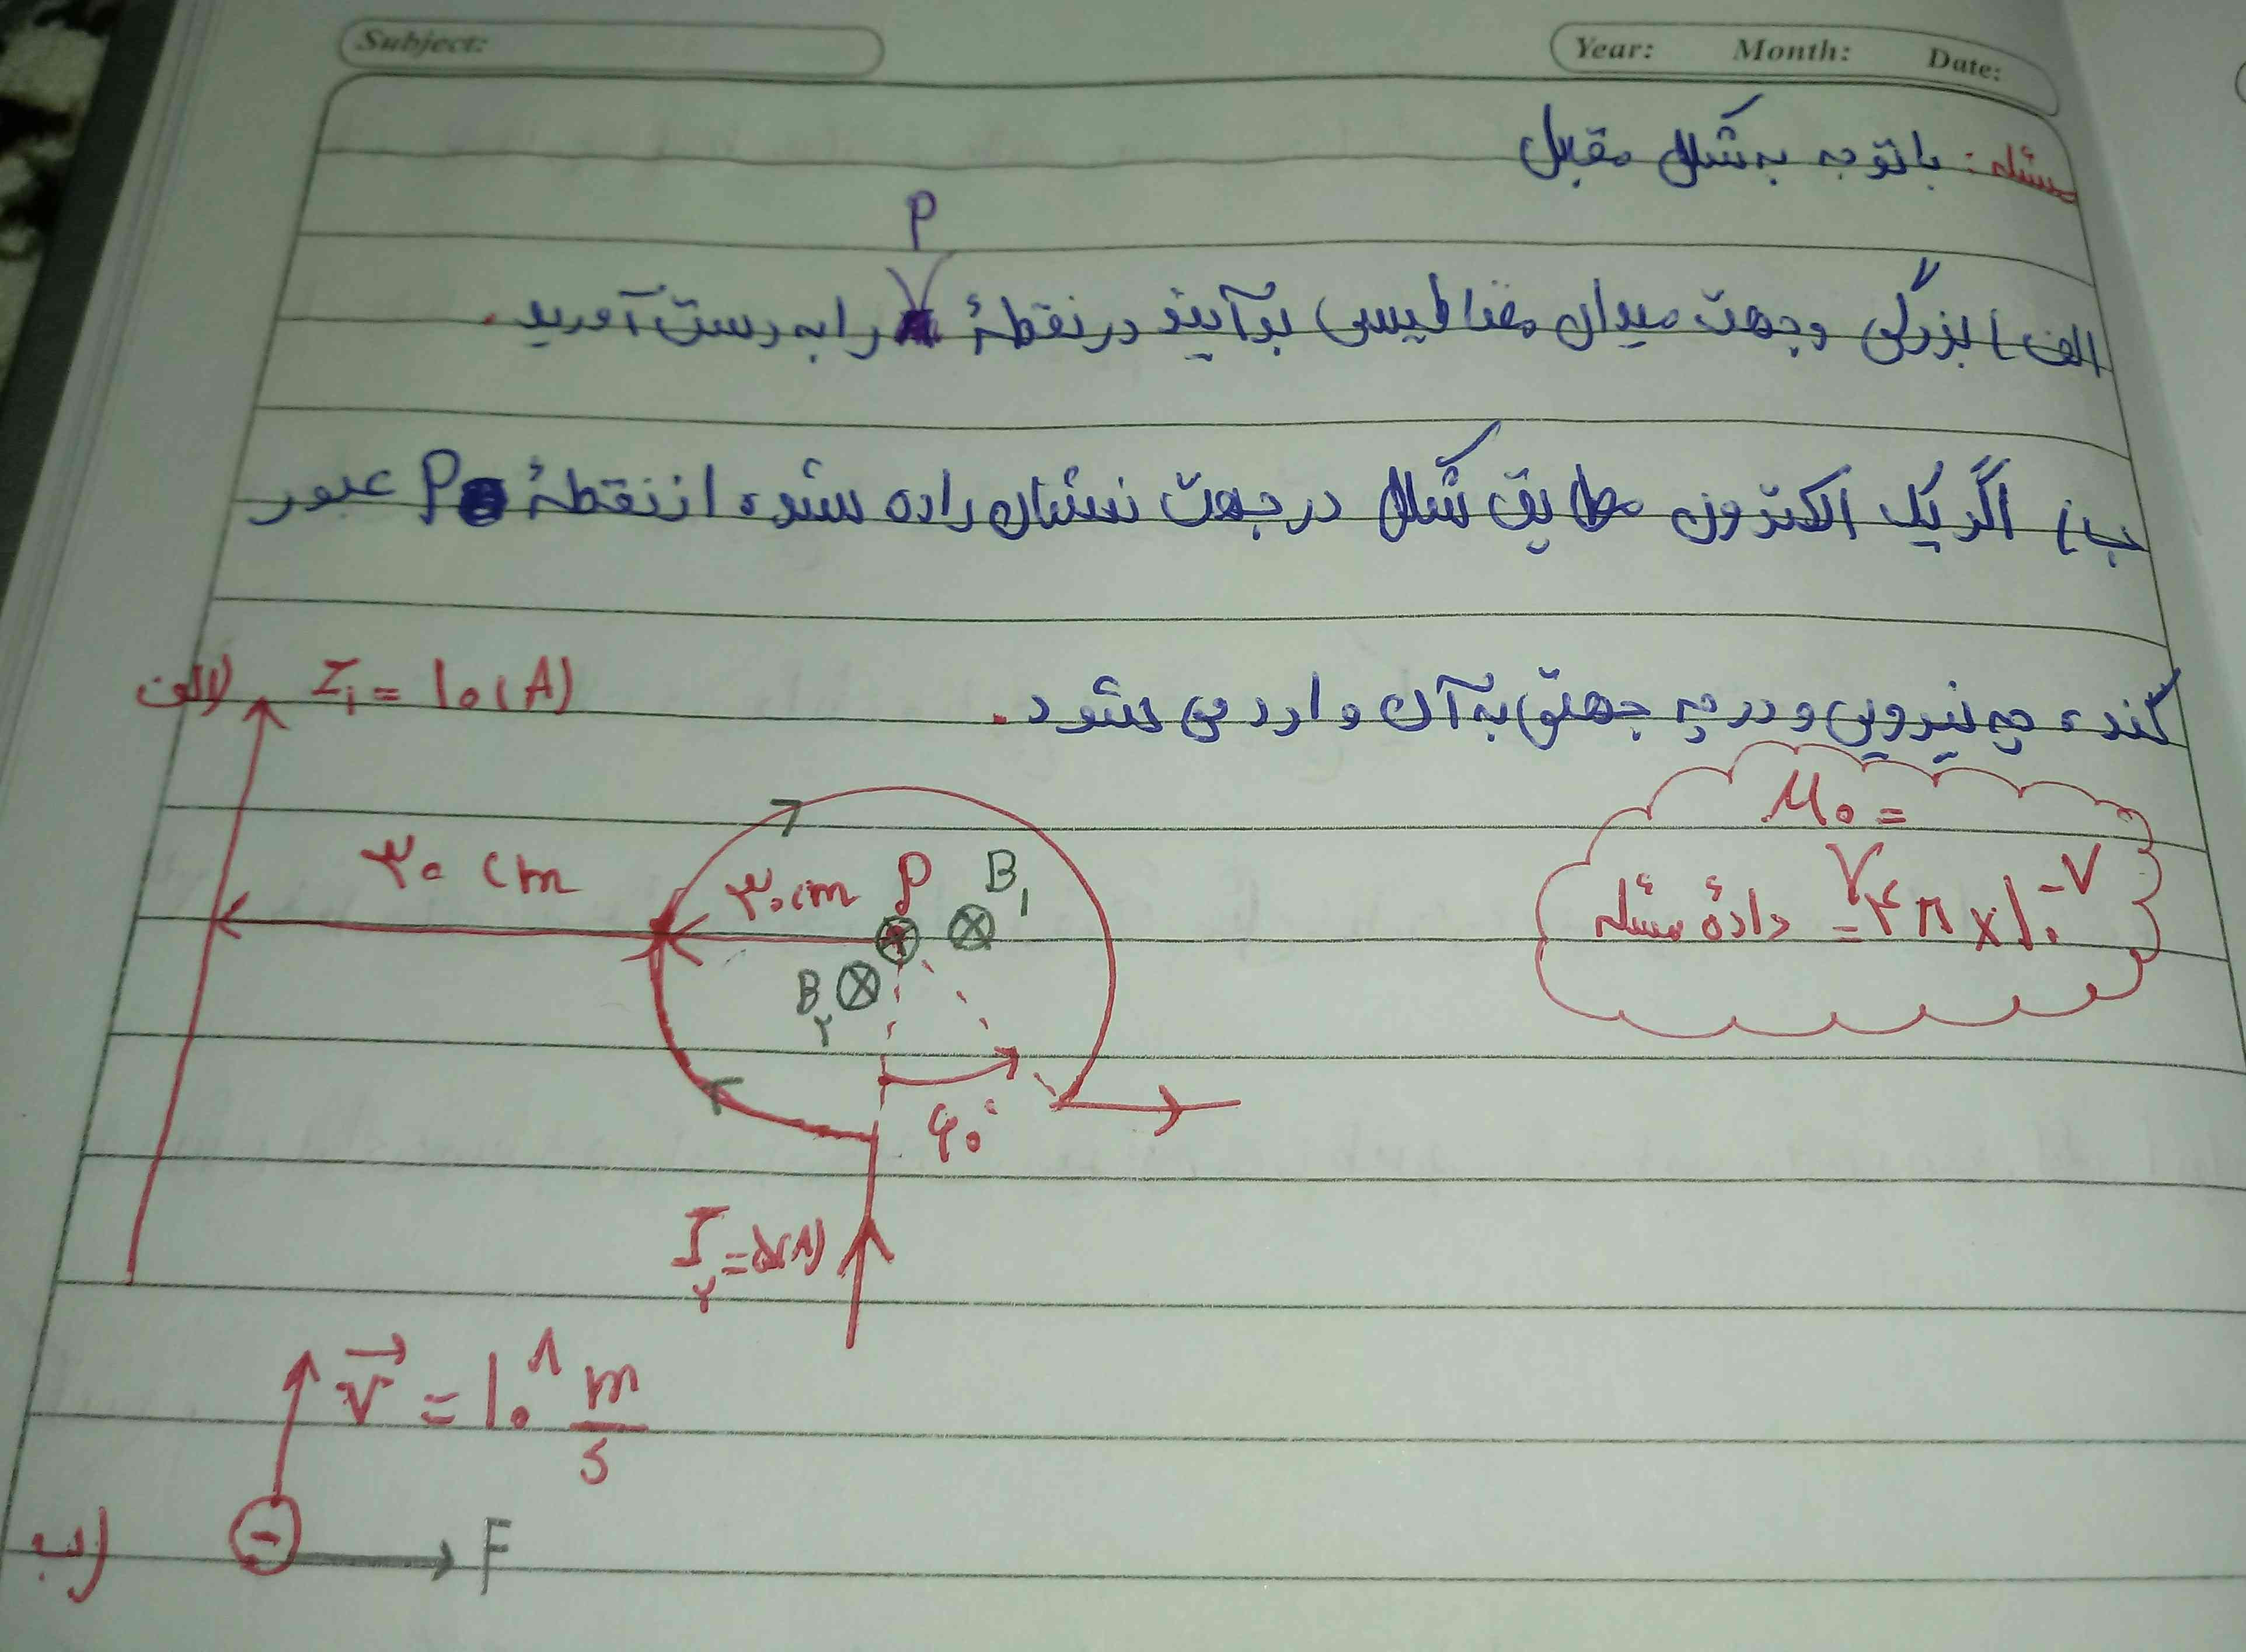 Subject:
Year: Month: Date:
مسئله: با توجه به شکل مقابل
P
الف) بزرگی و جهت میدان مغناطیسی برآیند در نقطهٔ را به دست آورید.
ب) اگر یک الکترون مطابق شکل در جهت نشان داده شده از نقطهٔ P عبور
کند، چه نیرویی و در چه جهتی به آن وارد می شود.
الف) I₁ = 10(A)
μ₀ =
۳۰ cm
۳۰cm P B₁
داده مسئله = ۴π×۱۰⁻⁷
B₂
۶۰°
I₂ = ۵(A)
V⃗ = ۱۰⁸ m/s
ب) − F